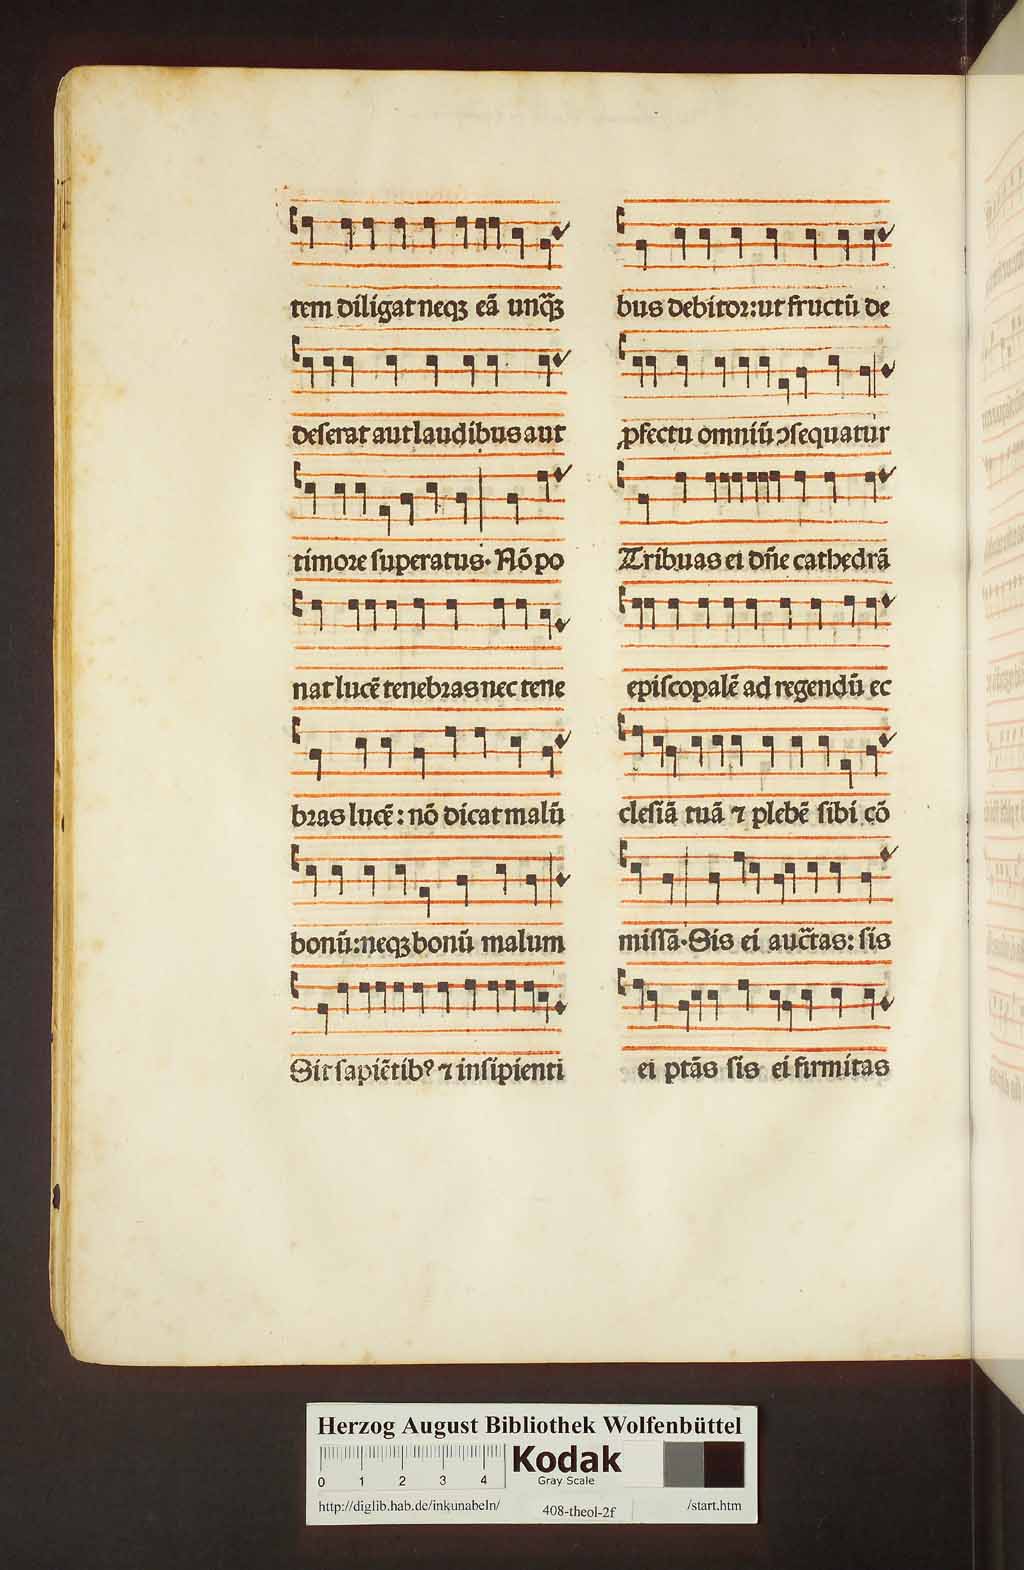 tem diligat neqꝫ eā unq̄ꝫ
deserat aut laudibus aut
timore superatus· Nō po
nat lucē tenebras nec tene
bras lucē: nō dicat malū
bonū: neqꝫ bonū malum
Sit sapiētibꝰ ⁊ insipienti
bus debitor: ut fructū de
ꝓfectu omniū ↄsequatur
Tribuas ei dn̄e cathedrā
episcopalē ad regendū ec
clesiā tuā ⁊ plebē sibi cō
missā· Sis ei auc̄tas: sis
ei ptās sis ei firmitas
Herzog August Bibliothek Wolfenbüttel
0 1 2 3 4
Kodak
Gray Scale
http://diglib.hab.de/inkunabeln/ 408-theol-2f /start.htm